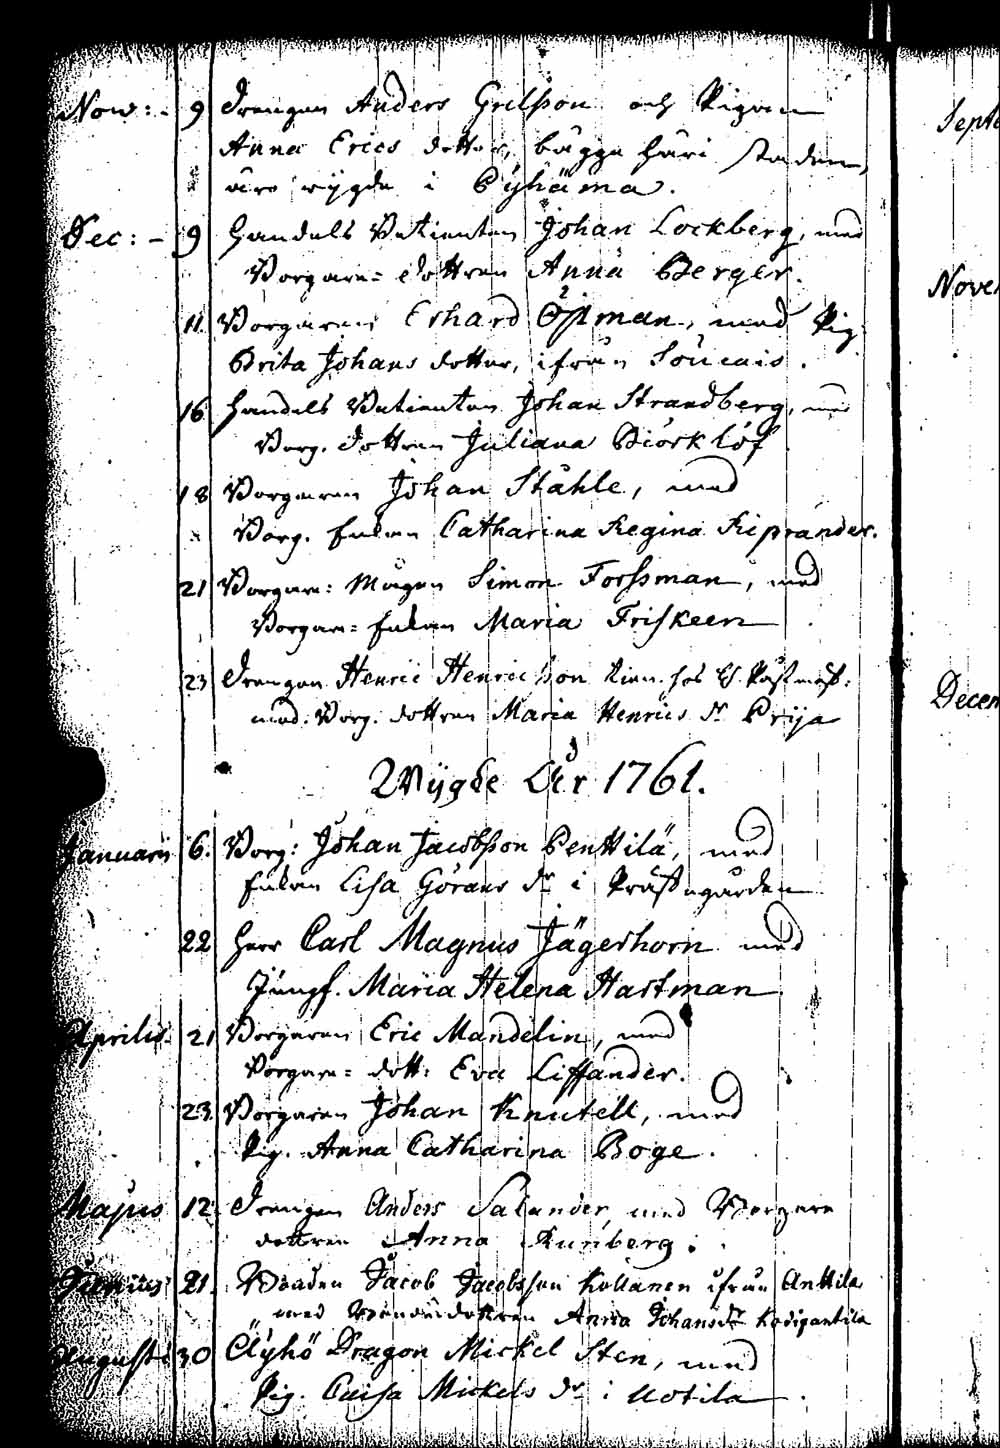 Now: - 9 Drengen Anders Grelsson och Pigan
Anna Erics dotter, bägge häri staden,
äro wygde i Pyhäma.
Dec: - 9 Handels Betienten Johan Lockberg, med
Borgare= dottren Anna Berger.
11 Borgaren Erhard Östman, med Pig.
Brita Johans dotter, ifrån
16 Handels Betienten Johan Strandberg, med
Borg. dottren Juliana Biörklöf
18 Borgaren Johan Ståhle, med
Borg. Enkan Catharina Regina Kiprander.
21 Borgare: Mågen Simon Forssman, med
Borgare= Enkan Maria Friskeen
23 Drengen Henric Henricsson tien. hos
med Borg. dottren Maria Henrics dr Prija
Wygde År 1761.
Januarii 6. Borg: Johan Jacobsson Penttilä, med
Enkan Lisa Görans dr i Prästegården
22 Herr Carl Magnus Jägerhorn med
Jungf. Maria Helena Hartman
Aprilis. 21 Borgaren Eric Mandelin, med
Borgare= dott: Eva Liffander.
23. Borgaren Johan Knutell, med
Pig. Anna Catharina Boge.
Majus 12. Drengen Anders Salander med Borgare
dottren Anna Runberg.
Junius 21. Bonden Jacob Jacobsson Kollanen ifrån Anttila
med Bonde dottren Anna Johans dr
Augusti 30 Äyhö Dragon Mickel Sten, med
Pig. Caisa Mickels dr i Uotila
Septe
Novem
Decem